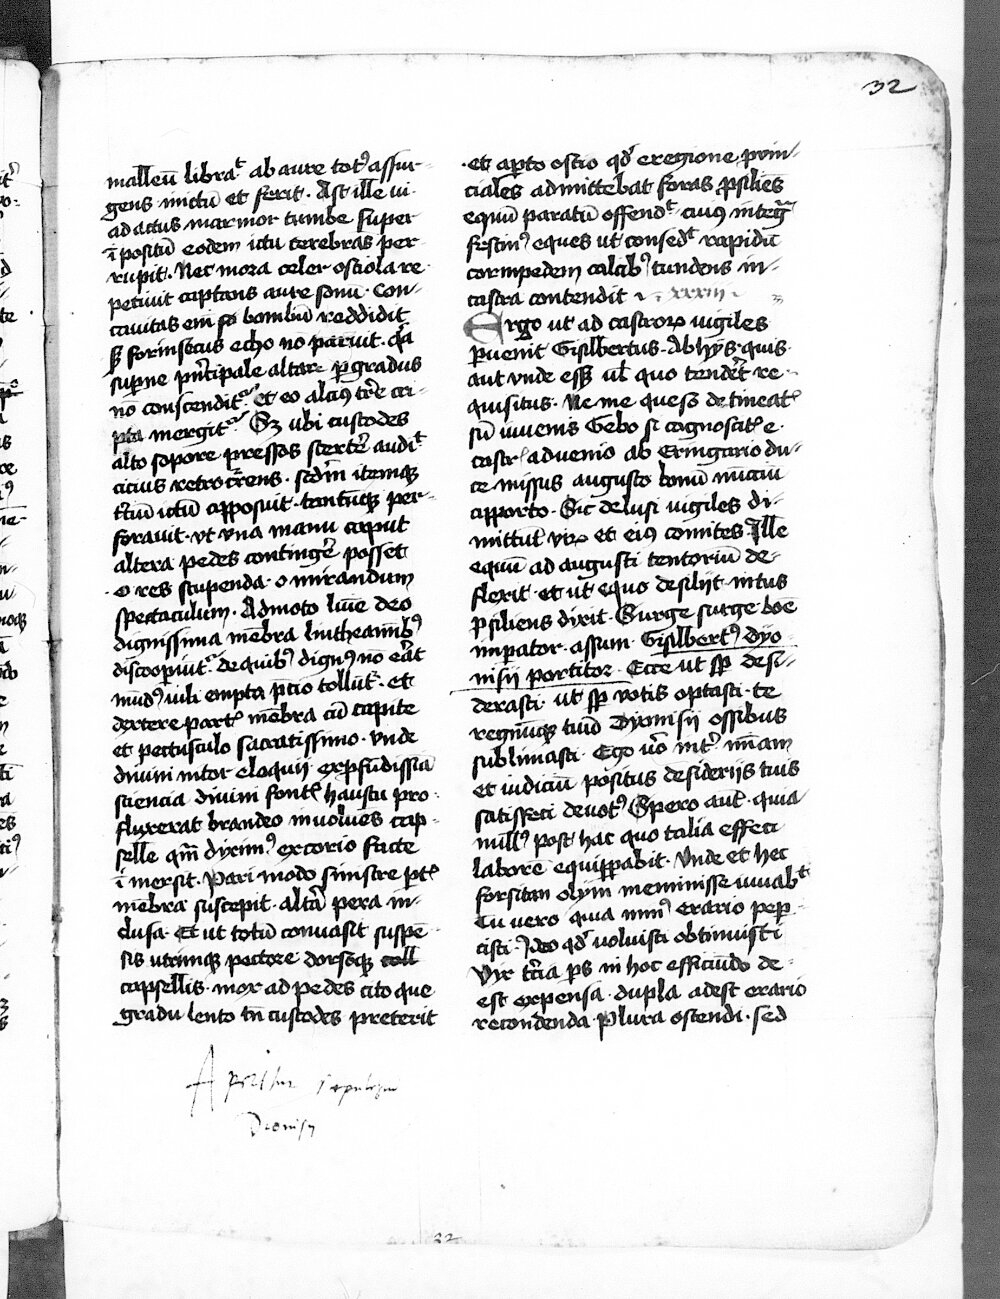 32
malleū libraᵗ ab aure totꝰ assur-
gens nictū et ferit. Ast ille ui-
ad actus marmor tumbe super
īpositū eodem ictu terebras per-
rupit. Nec mora celer ostiola re-
petiuit captans aure sonū. Con-
cauitas eni so bombiū reddidit
forinsecus echo nō pariut. qͣ
suꝑne pn̄cipale altare ꝑ gradus
nō conscendit et eo alciꝰ tr̄e cri-
pta mergit. Sꝫ ubi custodes
alto sopore pressos sterter̄ audiᵗ
cicius retro tr̄ens. sedm̄ itemqꝫ
tr̄ciū ictū apposuit. tantūqꝫ per-
forauit. vt vna manu caput
altera pedes continger̄ posset
o res stupenda. o mirandum
spectaculum. Admoto lūīe deo
dignissima mēbra lintheamībꝰ
discoopiūt. de quibꝰ dignꝰ nō er̄at
mūdꝰ uili empta p̄tio tollūt. et
dextere part᷒ mēbra cū capite
et pectusculo sacratissimo. vnde
diuini nitor eloquij ex ꝓfūdissīa
sciencia diuini font᷒ haustu pro-
fluxerat brandeo inuoluēs cap-
selle qm̄ diximꝰ ex corio facte
īmersit. Pari modo sinistre pt᷒
mēbra suscepit. altā pera in-
clusa. Et ut totū conuasit suspē-
sis utrimqꝫ pectore dorsoqꝫ coll
capsellis. mox ad pedes cito que
gradu lento tn̄ custodes preterit
Apertur sepulcrum
Dionisij
et aꝑto ostio qđ e regione prin-
ciales admittebat foras ꝓsiliēs
equū paratū offendᵗ cuiꝰ integͣ
festinꝰ eques ut consedᵗ rapidū
cornipedem calcibꝰ tundens in
castra contendit xxxiii
Ergo ut ad castroꝝ uigiles
ꝑuenit Gislbertus. Ab hijs. quis
aut vnde esset ul̄ quo tender̄t re-
quisitus. Ne me queso detineatꝭ
sū iuuenis Gebo si cognoscitꝭ e
castrꝭ aduenio ab Eringario du-
ce missus augusto bonū nūciū
apporto. Sic delusi uigiles di-
mittūt viꝝ et eiꝰ comites. Ille
equū ad augusti tentoriū de-
flexit. et ut equo desilijt intus
ꝓsiliens dixit. Surge surge boē
imꝑator. assum. Gislbertꝰ Dyo-
nisij portitor. Ecce ut sꝑ desi-
derasti. ut sꝑ votis optasti. te
regnūqꝫ tuū Dyonisij ossibus
sublimasti. Ego uō int͛ nīam
et iudiciū positus desiderijs tuis
satisfeci deuotꝰ Spero aut̄. quia
nullꝰ post hac quo talia effeci
laborē equipꝑabit. Unde et hec
forsitan olym meminisse iuuabᵗ
Tu vero quia nimꝰ erario peꝑ-
cisti. Ideo qđ uoluisti obtinuisti
Vix tr̄cia ꝑs in hoc efficiūdo de-
est expensa. dupla adest erario
recondenda. Plura ostendi. sed
32